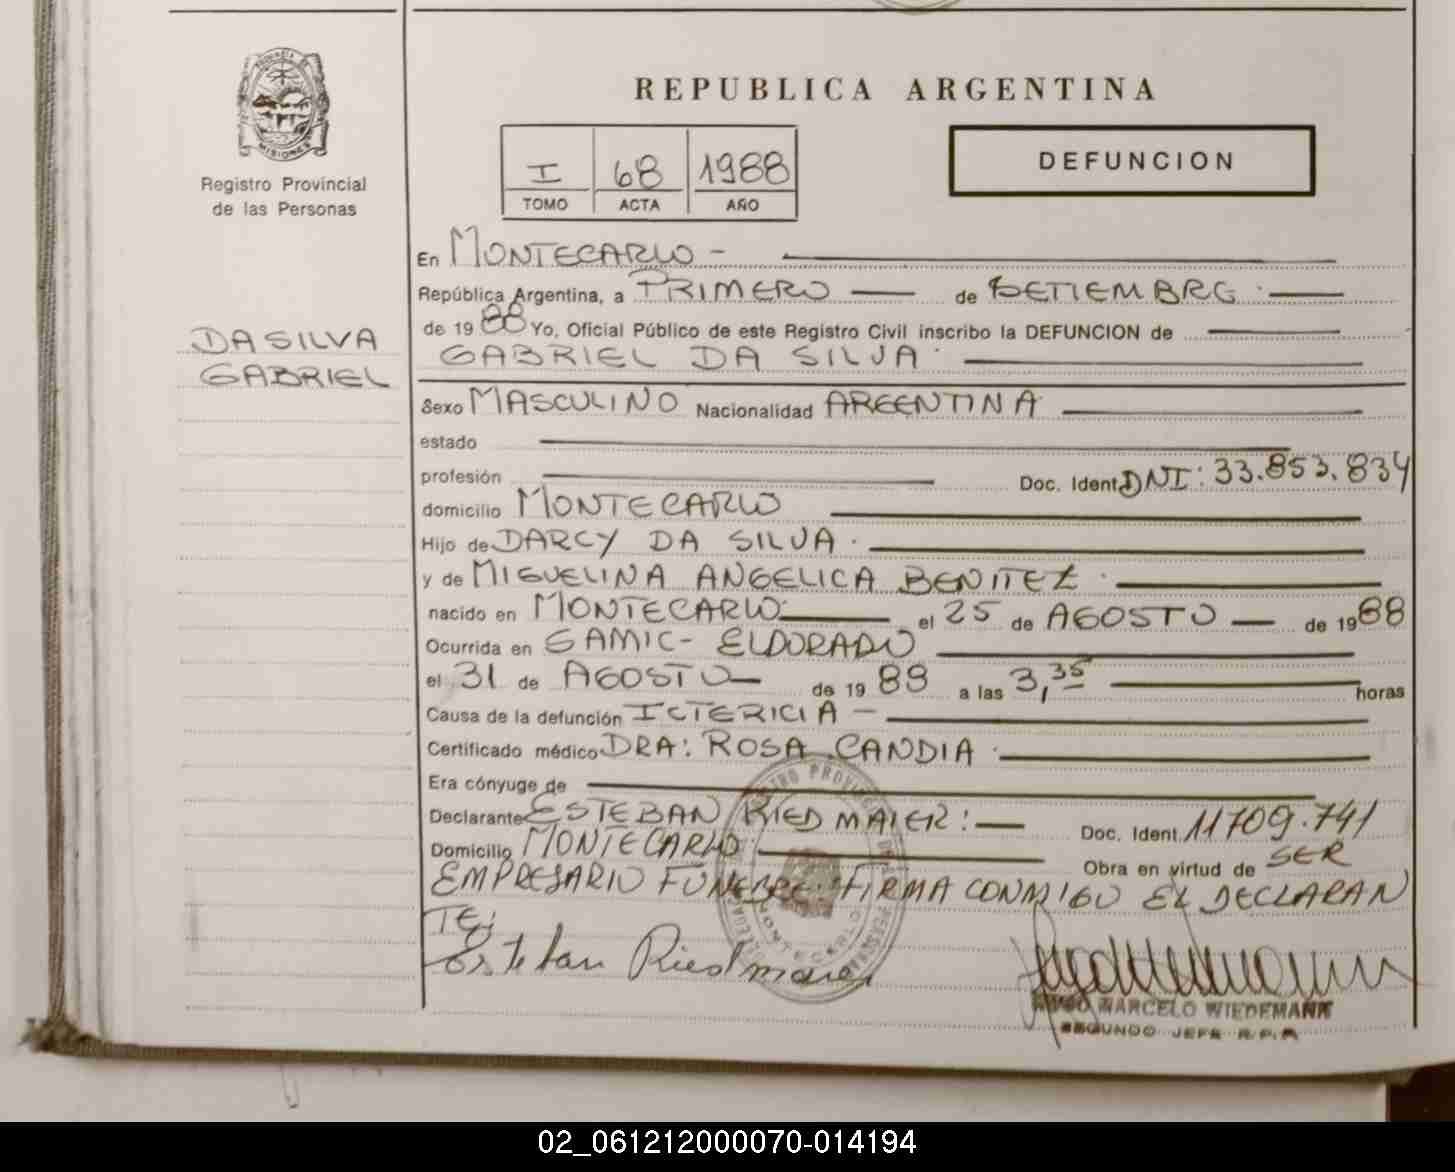 PROVINCIA DE
MISIONES
Registro Provincial
de las Personas
DA SILVA
GABRIEL
REPUBLICA ARGENTINA
I 68 1988
TOMO ACTA AÑO
DEFUNCION
En MONTECARLO -
República Argentina, a PRIMERO de SETIEMBRE.
de 1988 Yo, Oficial Público de este Registro Civil inscribo la DEFUNCION de
GABRIEL DA SILVA.
Sexo MASCULINO Nacionalidad ARGENTINA
estado
profesión Doc. Ident. DNI: 33.853.834
domicilio MONTECARLO
Hijo de DARCY DA SILVA.
y de MIGUELINA ANGELICA BENITEZ.
nacido en MONTECARLO: el 25 de AGOSTO de 1988
Ocurrida en SAMIC - ELDORADO
el 31 de AGOSTO de 1988 a las 3,35 horas
Causa de la defunción ICTERICIA -
Certificado médico DRA: ROSA CANDIA.
Era cónyuge de
Declarante ESTEBAN RIEDMAIER: Doc. Ident. 11709.741
Domicilio MONTECARLO: Obra en virtud de SER
EMPRESARIO FUNEBRE. FIRMA CONMIGO EL DECLARAN
TE;
Esteban Riedmaier
HUGO MARCELO WIEDEMANN
SEGUNDO JEFE R.P.P.
02_061212000070-014194